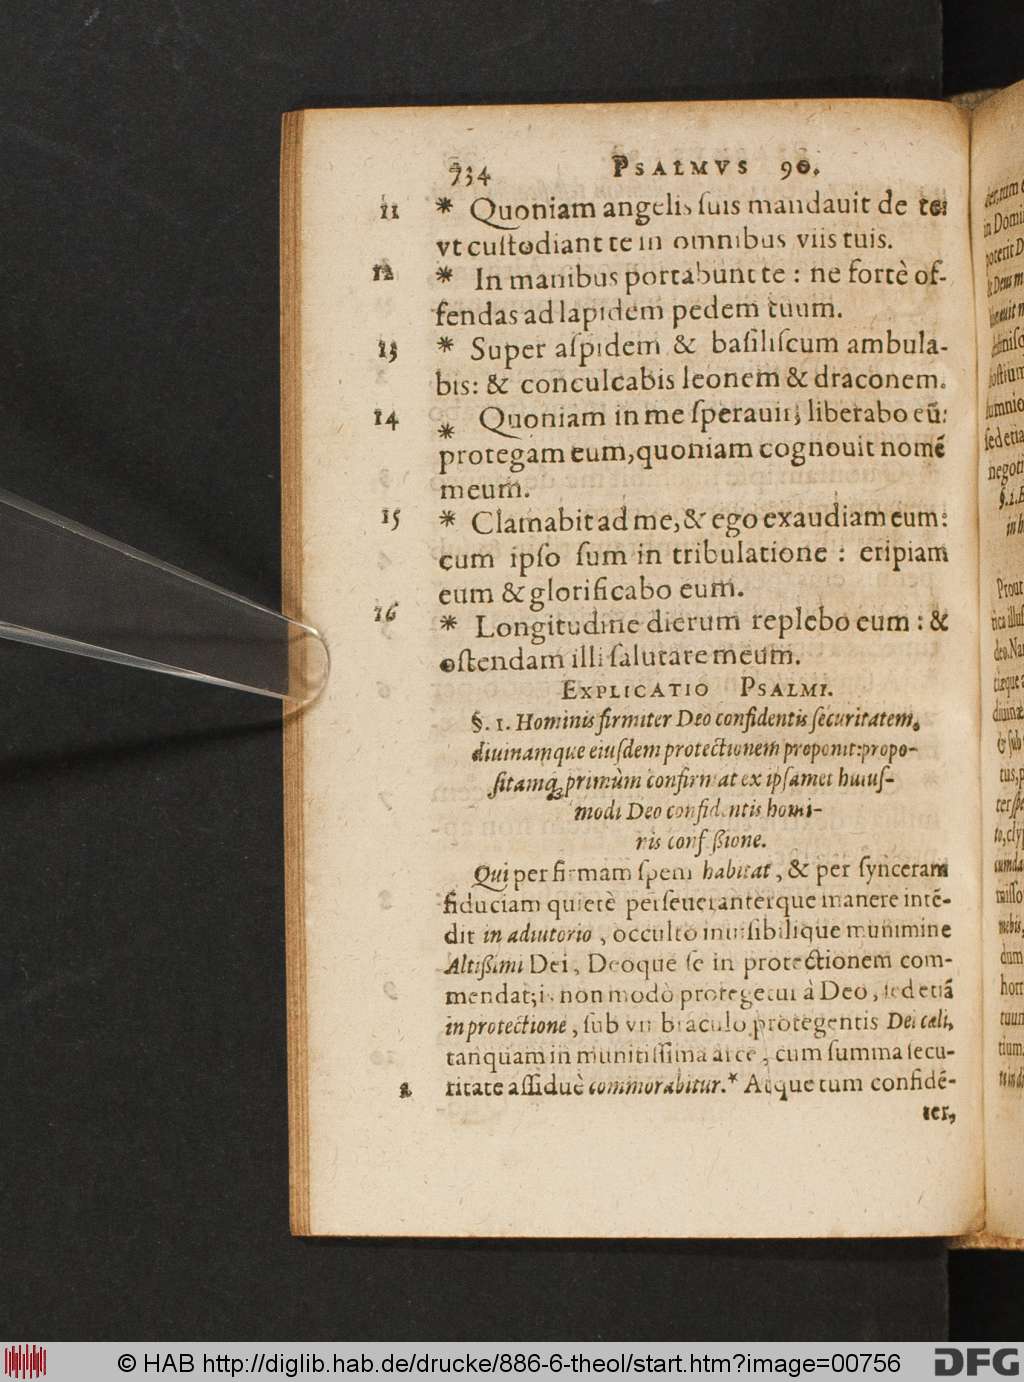 734 PSALMVS 90.
11 * Quoniam angelis ſuis mandauit de te:
vt cuſtodiant te in omnibus viis tuis.
12 * In manibus portabunt te : ne fortè of-
fendas ad lapidem pedem tuum.
13 * Super aſpidem & baſiliſcum ambula-
bis: & conculcabis leonem & draconem.
14 * Quoniam in me ſperauit; liberabo eũ:
protegam eum, quoniam cognouit nomẽ
meum.
15 * Clamabit ad me, & ego exaudiam eum:
cum ipſo ſum in tribulatione : eripiam
eum & glorificabo eum.
16 * Longitudine dierum replebo eum : &
oſtendam illi ſalutare meum.
EXPLICATIO PSALMI.
§. 1. Hominis firmiter Deo confidentis ſecuritatem,
diuinamque eiuſdem protectionem proponit: propo-
ſitamq; primùm confirmat ex ipſamet huiuſ-
modi Deo confidentis homi-
nis confeßione.
Qui per firmam ſpem habitat, & per ſynceram
fiduciam quietè perſeueranterque manere intẽ-
dit in adiutorio, occulto inuiſibilique munimine
Altißimi Dei, Deoque ſe in protectionem com-
mendat; is non modò protegetur à Deo, ſed etiã
in protectione, ſub vmbraculo protegentis Dei cæli,
tanquam in munitiſſima arce, cum ſumma ſecu-
2 ritate aſſiduè commorabitur.* Atque tum confidẽ-
ter,
© HAB http://diglib.hab.de/drucke/886-6-theol/start.htm?image=00756
DFG